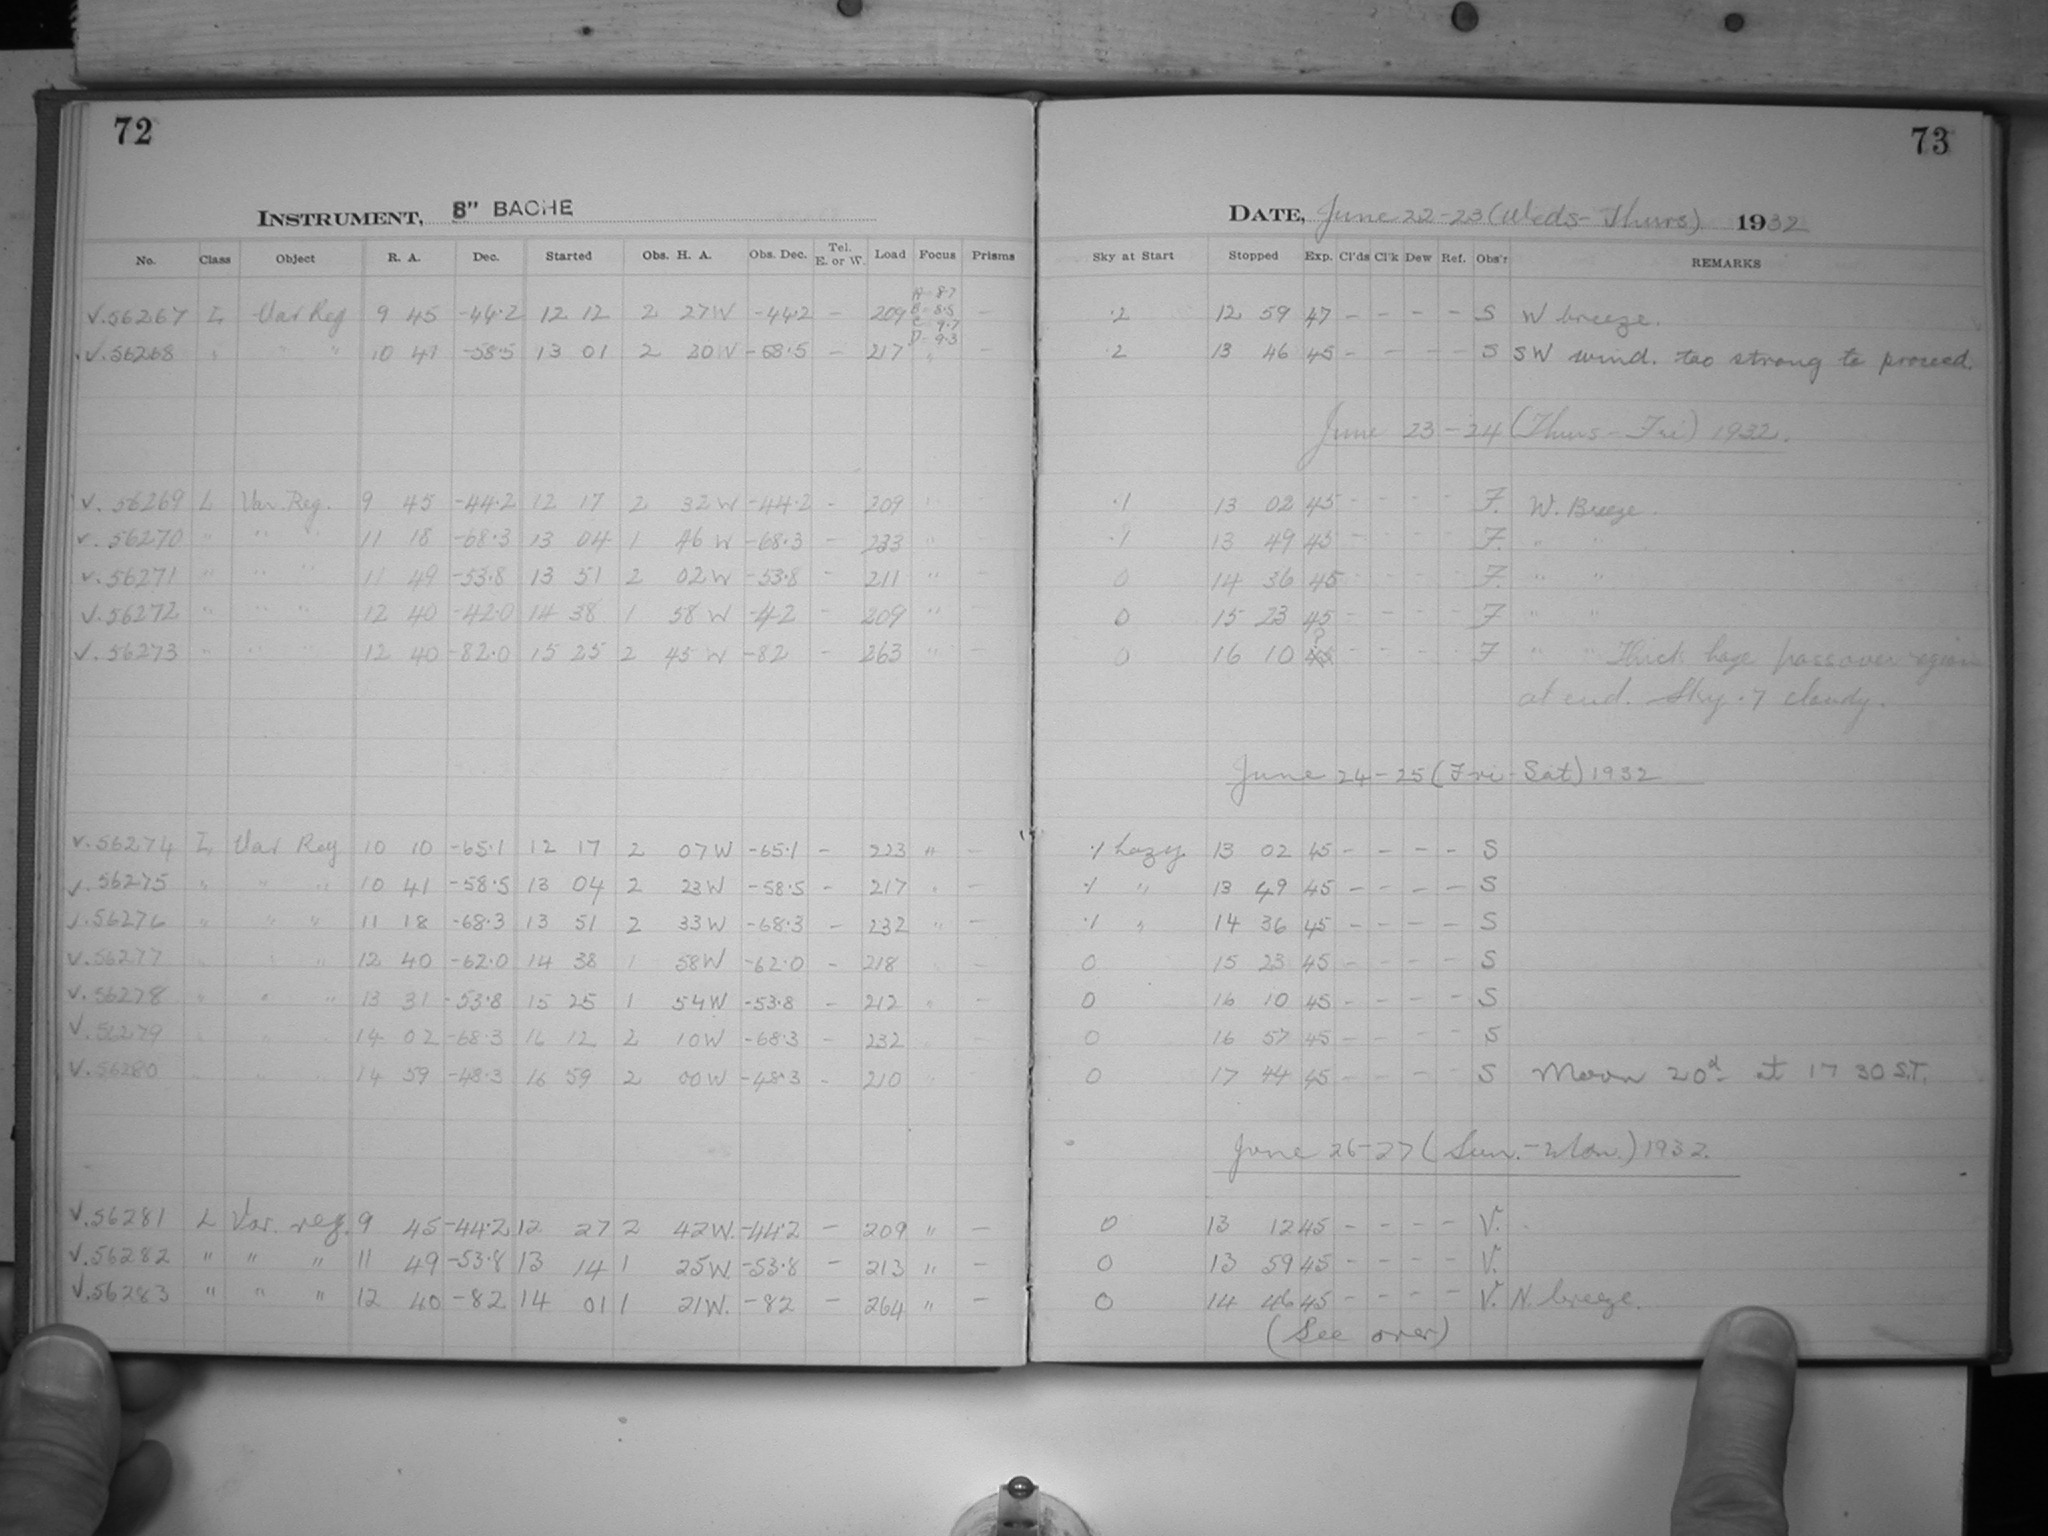 72
INSTRUMENT, 8" BACHE
No. Class Object R. A. Dec. Started Obs. H. A. Obs. Dec. Tel. E. or W. Load Focus Prisms
A = 8.7
B = 8.5
C = 9.7
D = 9.3
√.56267 L Var Reg 9 45 -44.2 12 12 2 27W -44.2 - 209 -
√.56268 " " " 10 41 -58.5 13 01 2 20W -58.5 - 217 " -
√. 56269 L Var. Reg. 9 45 -44.2 12 17 2 32W -44.2 - 209 " -
√. 56270 " " " 11 18 -68.3 13 04 1 46 W -68.3 - 233 " -
√. 56271 " " " 11 49 -53.8 13 51 2 02W -53.8 - 211 " -
√. 56272 " " " 12 40 -42.0 14 38 1 58 W -42 - 209 " -
√. 56273 " " " 12 40 -82.0 15 25 2 45 W -82 - 263 " -
√.56274 L Var Reg 10 10 -65.1 12 17 2 07W -65.1 - 223 " -
√.56275 " " " 10 41 -58.5 13 04 2 23W -58.5 - 217 " -
√.56276 " " " 11 18 -68.3 13 51 2 33W -68.3 - 232 " -
√.56277 " " " 12 40 -62.0 14 38 1 58W -62.0 - 218 " -
√.56278 " " " 13 31 -53.8 15 25 1 54W -53.8 - 212 " -
√.56279 " " " 14 02 -68.3 16 12 2 10W -68.3 - 232 " -
√.56280 " " " 14 59 -48.3 16 59 2 00W -48.3 - 210 " -
√.56281 L Var. reg. 9 45 -44.2 12 27 2 42W. -44.2 - 209 " -
√.56282 " " " 11 49 -53.8 13 14 1 25W. -53.8 - 213 " -
√.56283 " " " 12 40 -82 14 01 1 21W. -82 - 264 " -
73
DATE, June 22-23 (Weds-Thurs) 1932
Sky at Start Stopped Exp. Cl'ds Cl'k Dew Ref. Obs'r REMARKS
.2 12 59 47 - - - - S W breeze.
.2 13 46 45 - - - - S SW wind. too strong to proceed.
June 23-24 (Thurs-Fri) 1932.
.1 13 02 45 - - - - F. W. Breeze.
.1 13 49 45 - - - - F. " "
0 14 36 45 - - - - F. " "
0 15 23 45 - - - - F " "
?
0 16 10 45 - - - - F " " Thick haze passover region
at end. Sky .7 cloudy.
June 24-25 (Fri-Sat) 1932
.1 hazy. 13 02 45 - - - - S
.1 " 13 49 45 - - - - S
.1 " 14 36 45 - - - - S
0 15 23 45 - - - - S
0 16 10 45 - - - - S
0 16 57 45 - - - - S
0 17 44 45 - - - - S Moon 20d at 17 30 S.T.
June 26-27 (Sun.-Mon.) 1932.
0 13 12 45 - - - - V.
0 13 59 45 - - - - V.
0 14 46 45 - - - - V. N. breeze.
(See over)